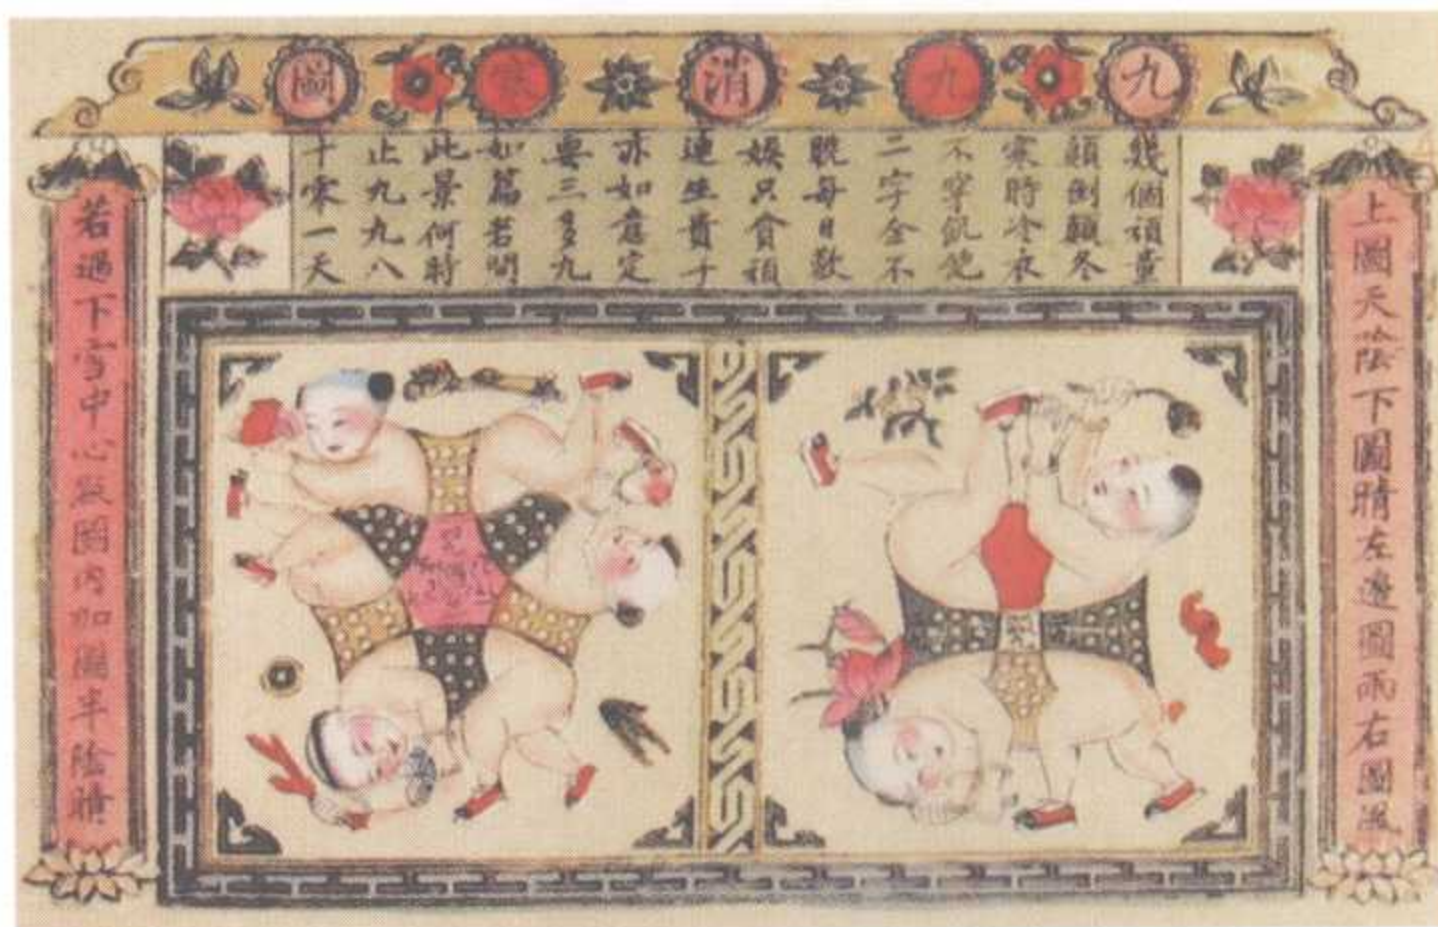 九九消寒圖
上圖天陰下圖晴左邊圖雨右圖風
幾個頑童
顛倒顛冬
寒時冷衣
不穿飢飽
二字全不
眈每日歡
娛只貪頑
連生貴子
亦如意定
要三多九
如篇若問
此景何時
止九九八
十零一天
若遇下雪中心圈內加圈半陰晴